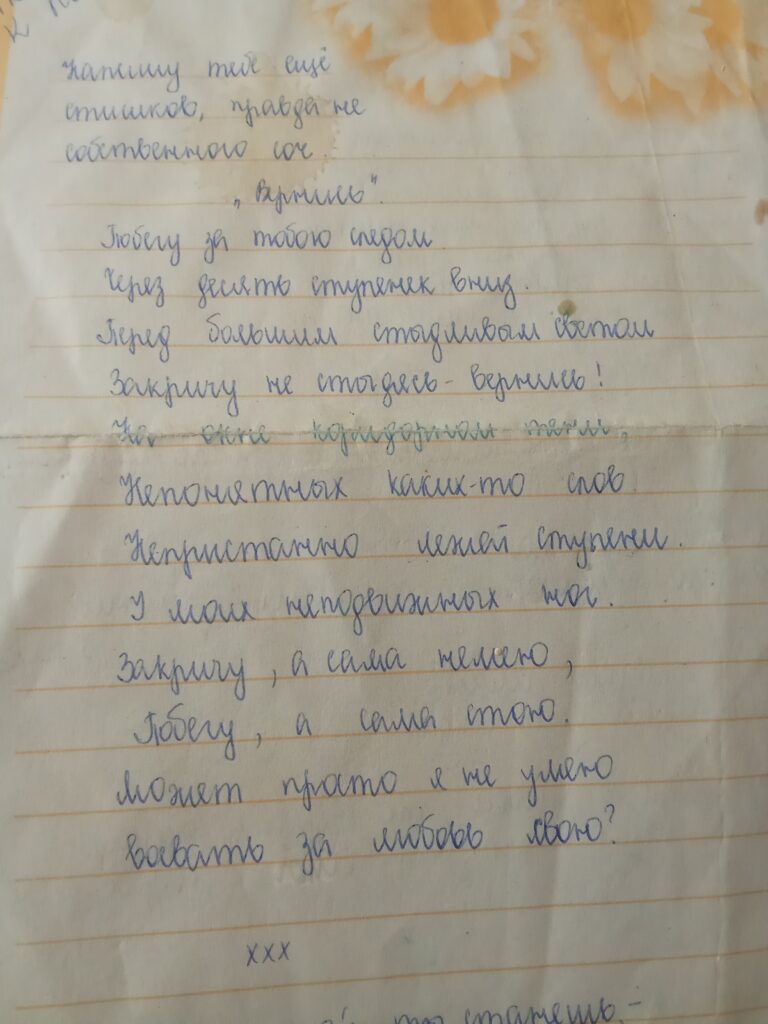 Напишу тебе ещё
стишков, правда не
собственного соч.
„Вернись".
Побегу за тобою следом
Через десять ступенек вниз.
Перед большим стыдливым светом
Закричу не стыдясь - вернись!
На окне коридорном тени,
Непонятных каких-то слов.
Непристанно лежат ступени.
У моих неподвижных ног.
Закричу, а сама немею,
Побегу, а сама стою.
Может просто я не умею
воевать за любовь свою?
xxx
ты станешь -